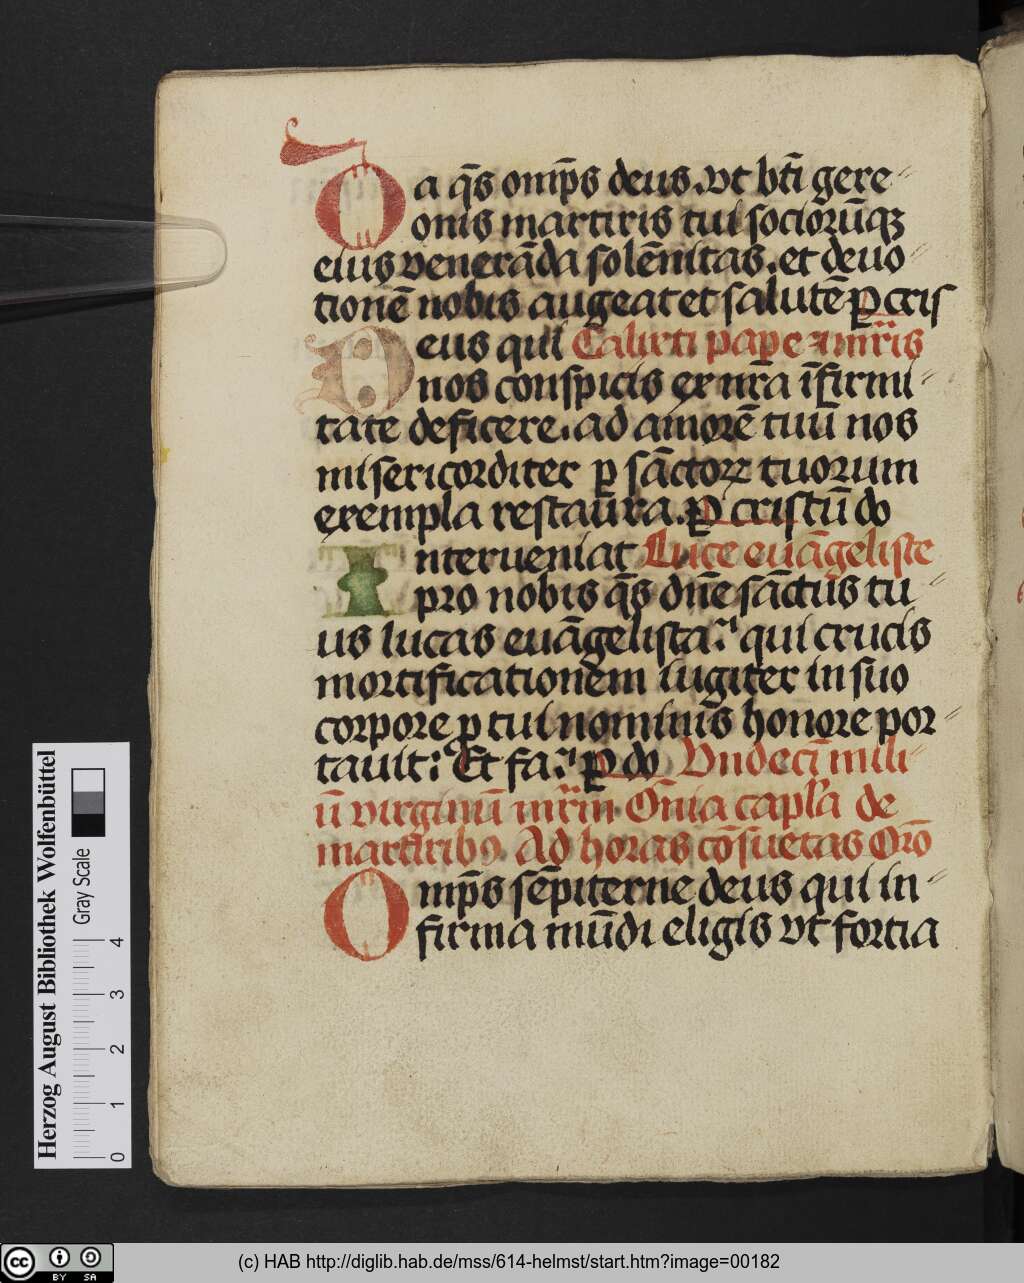 Da q̄s omp̄s deus. vt bt̄i gere-
onis martiris tui socioru̅qꝫ
eius venera̅da sole̅nitas. et deuo-
tione̅ nobis augeat et salute̅ ꝑ cris
Deus qui Calixti pape ⁊ mr̄is
nos conspicis ex nr̄a i̅firmi-
tate deficere. ad amore̅ tuu̅ nos
misericorditer ꝑ sa̅ctoꝝ tuorum
exempla restaura. ꝑ cristu̅ do
Interueniat Luce eua̅geliste
pro nobis q̄s dn̄e sa̅ctus tu-
us lucas eua̅gelista. qui crucis
mortificationem iugiter in suo
corpore ꝑ tui nominis honore por-
tauit: Et fa. ꝑ do Vndeci̅ mili-
u̅ virginu̅ mr̄m O̅nia capl̄a de
martiribꝰ. Ad horas co̅suetas Oro̅
Omp̄s se̅piterne deus qui in-
firma mu̅di eligis vt fortia
Herzog August Bibliothek Wolfenbüttel
Gray Scale
0 1 2 3 4
cc BY SA
(c) HAB http://diglib.hab.de/mss/614-helmst/start.htm?image=00182